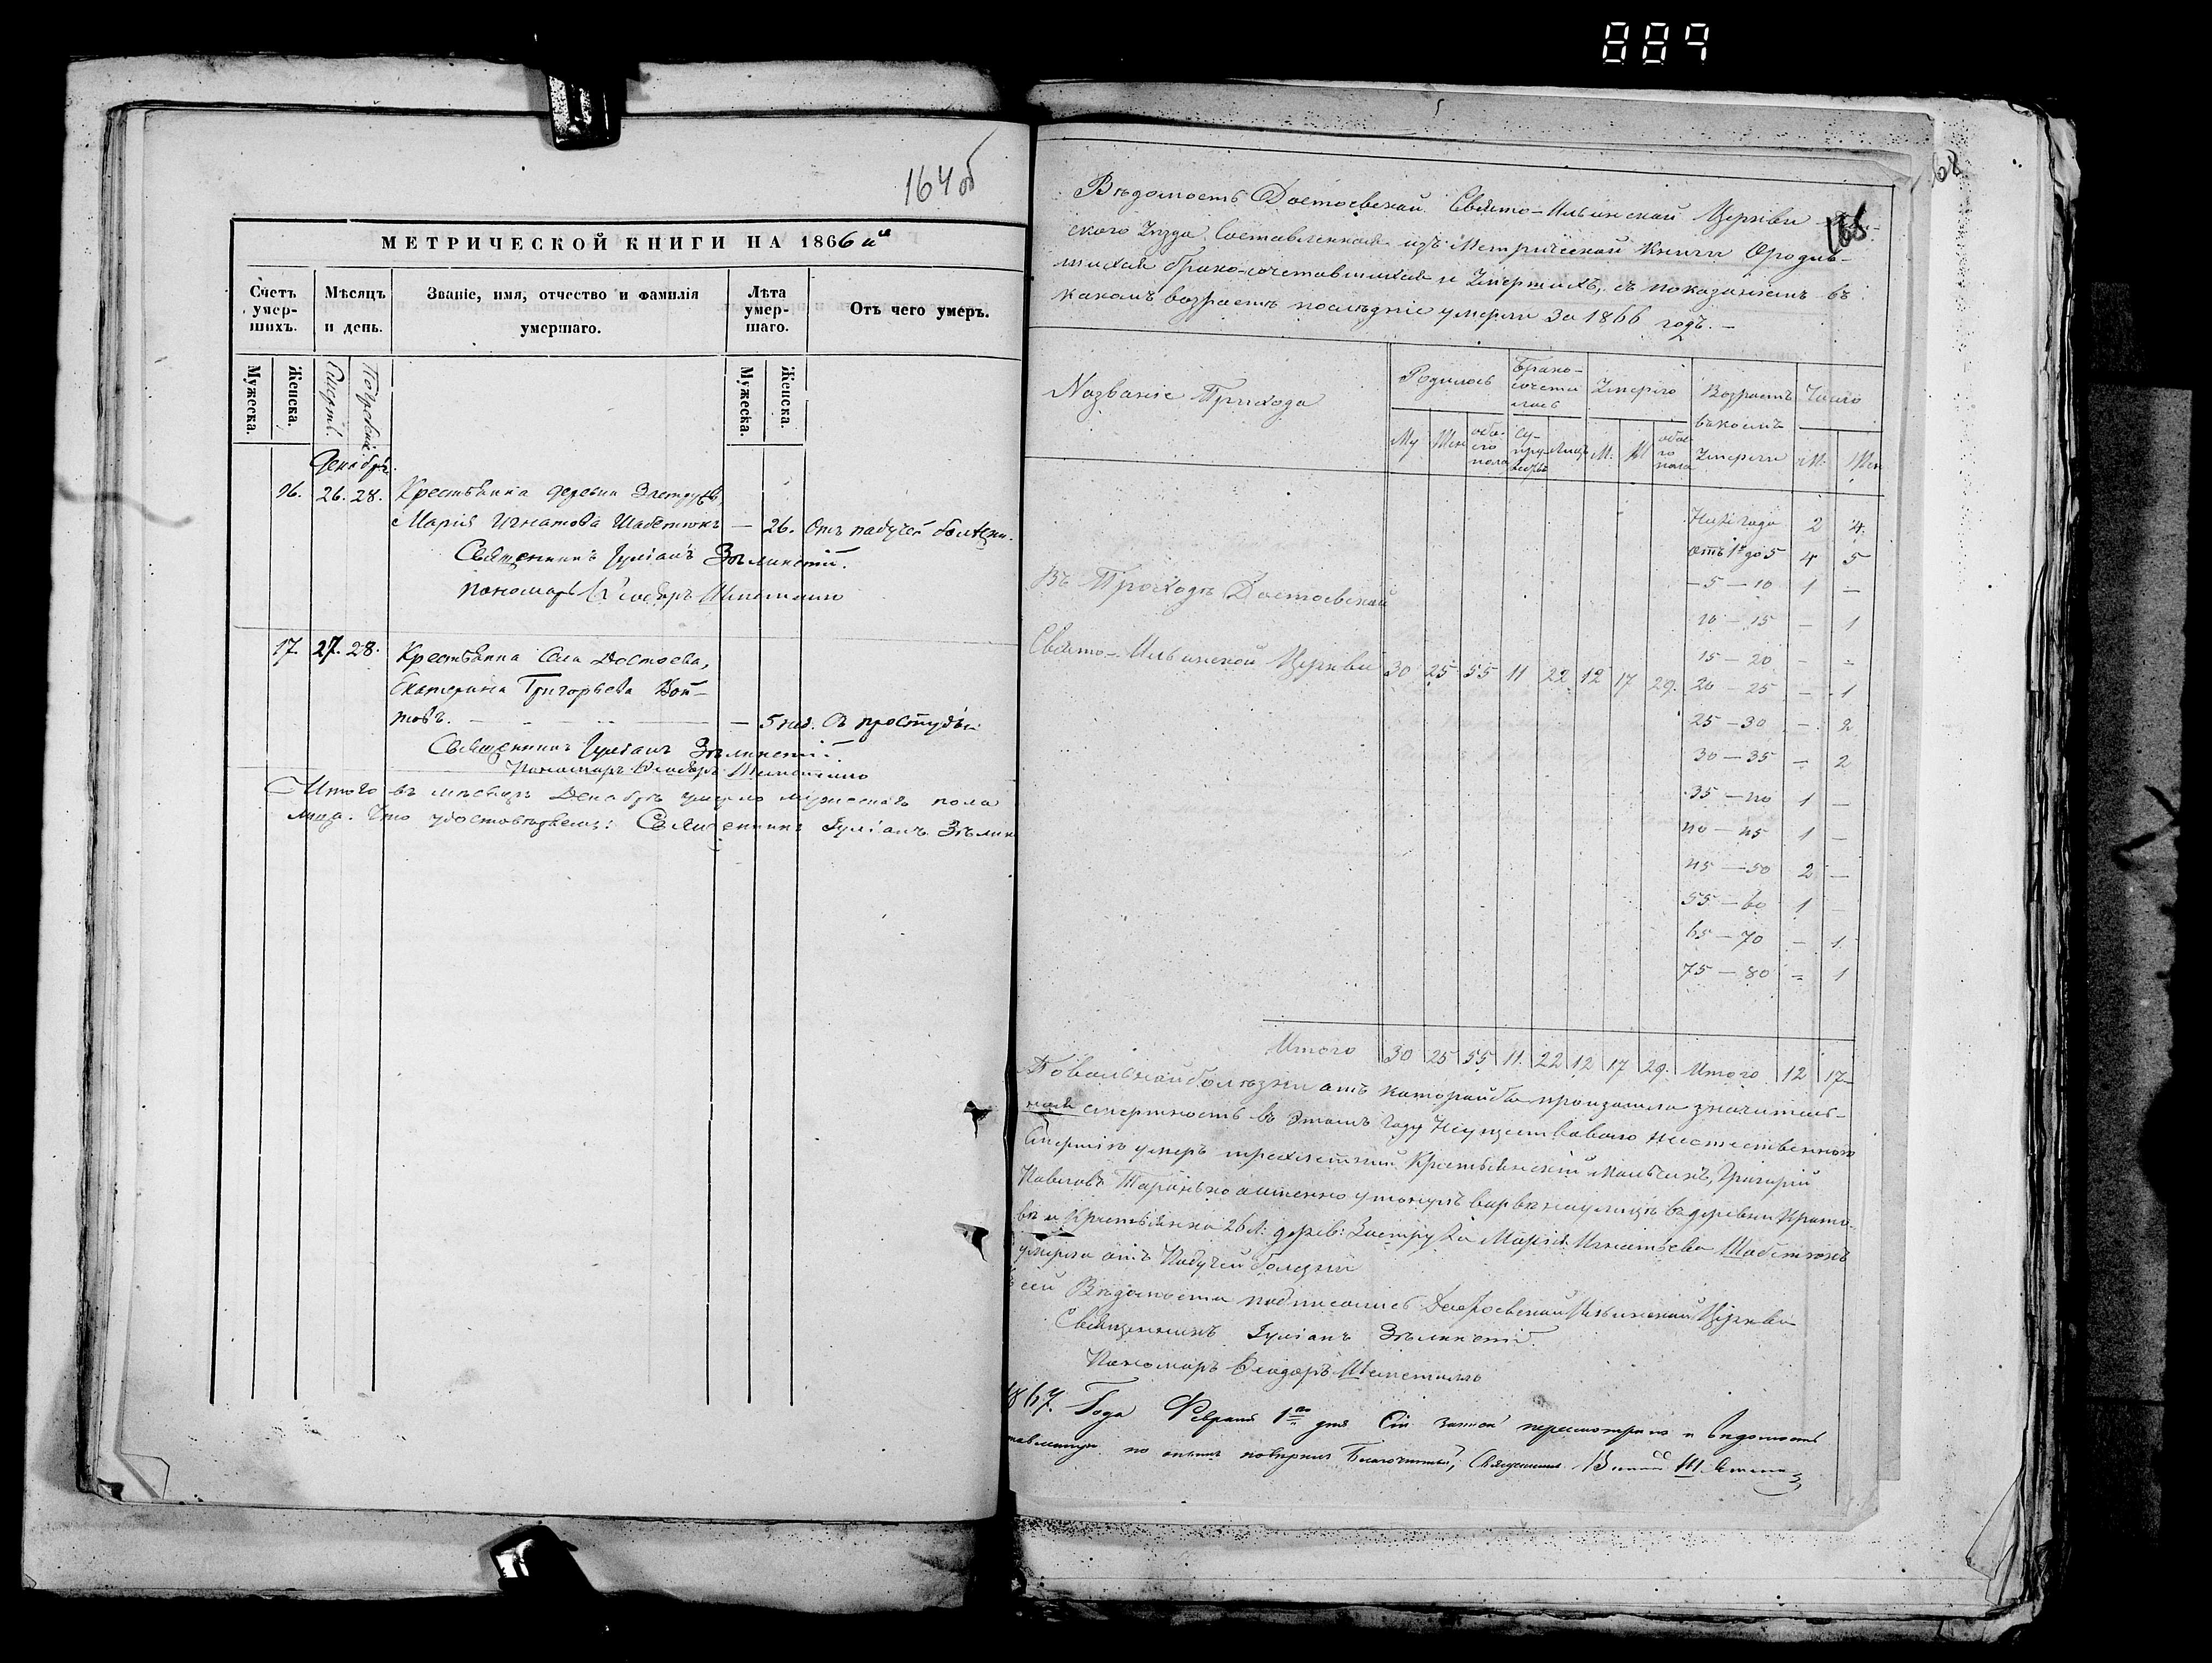 889
164 об
МЕТРИЧЕСКОЙ КНИГИ НА 1866 й
Счетъ умер-шихъ. Мѣсяцъ и день. Званіе, имя, отчество и фамилія умершаго. Лѣта умер-шаго. Отъ чего умеръ.
Мужеска. Женска. Смерти. Погребенія Мужеска. Женска.
Декабрь.
16. 26. 28. Крестьянка деревни
Марія Игнатова Шабетюкъ — 26. Отъ падучей болѣзни.
Священникъ Іуліанъ Зѣлинскій.
Пономарь Ѳеодоръ
17. 27. 28. Крестьянка Села Достоева,
Екатерина Григорьева Вой-
товъ. — 5 нед. Съ простуды
Священникъ Іуліанъ Зѣлинскій.
Пономарь Ѳеодоръ
Итого въ мѣсяцѣ Декабрѣ умерло мужескаго пола
Что удостовѣряемъ: Священникъ Іуліанъ Зѣлин
68
168
Вѣдомость Достоевской Свято-Ильинской Церкви
ского Уѣзда Составленная изъ Метрической Книги О родив-
шихся брако-сочетавшихся и Умершихъ, съ показаніемъ въ
какомъ возрастѣ послѣдніе умерли за 1866 годъ. —
Названіе Прихода Родилось Брако-сочета лось Умерло Возрастъ въ коемъ Умерли Число
Му Жен обо-его пола Су-пру-жествъ Лицъ М. Ж обое го пола М. Жен
Ниже года 2 4.
отъ 1го до 5 4 5
— 5 — 10 1 —
Въ Приходѣ Достоевской
10 — 15 — 1
15 — 20 — —
Свято-Ильинской Церкви 30 25 55 11 22 12 17 29. 20 — 25 — 1
25 — 30 — 2
30 — 35 — 2
35 — 40 1 —
40 — 45 1 —
45 — 50 2 —
55 — 60 1 —
65 — 70 — 1.
75 — 80 — 1
Итого 30 25 55 11. 22 12 17 29. Итого 12 17
Повальной болѣзни отъ которой бы произошла значитель-
ная смертность въ Этомъ Году Несуществовало неестественною
Смертію умеръ трехлѣтній Крестьянскій Мальчикъ, Григорій
Павловъ а именно утонулъ въ деревни
въ и Крестьянка 26 л: дерев: Марія Игнатьева Шабетюкъ
умерла отъ Падучей болѣзни
сей Вѣдомости подписались Достоевской Ильинской Церкви
Священникъ Іуліанъ Зѣлинскій.
Пономарь Ѳеодоръ
1867. Года Февраля 1го дня Сій записи пересмотрѣлъ и Вѣдомость
по онымъ повѣрилъ Благочинный, Священникъ